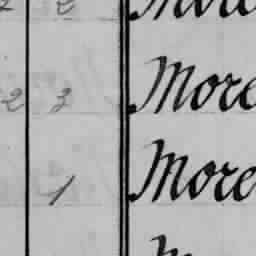 2 More
2 3 More
1 More